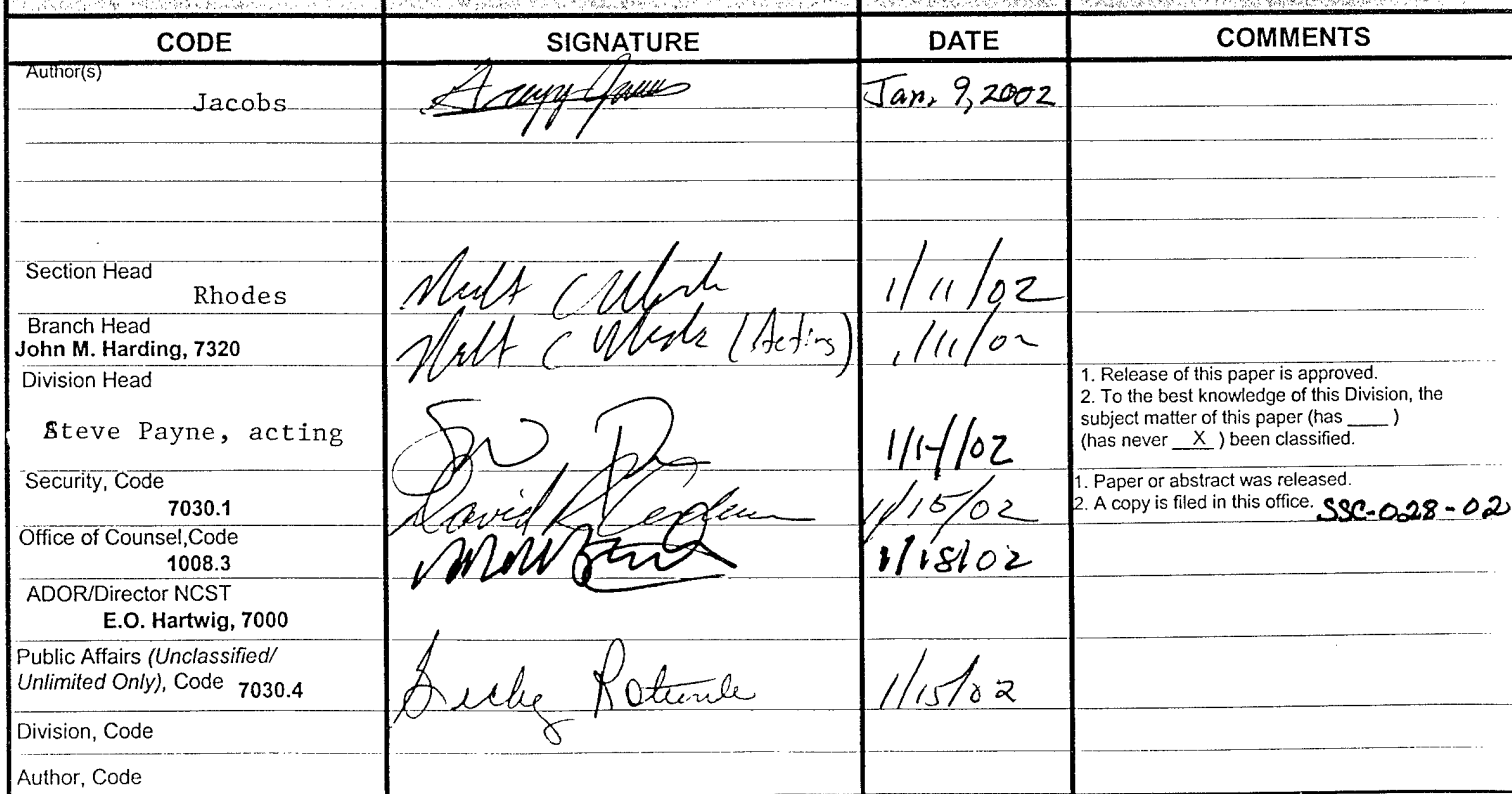 CODE SIGNATURE DATE COMMENTS
Author(s)
Jacobs Jan. 9, 2002
Section Head
Rhodes 1/11/02
Branch Head
John M. Harding, 7320 (Acting) 1/11/02
Division Head
Steve Payne, acting 1/14/02
1. Release of this paper is approved.
2. To the best knowledge of this Division, the
subject matter of this paper (has ____ )
(has never __X__ ) been classified.
Security, Code
7030.1 David 1/15/02
1. Paper or abstract was released.
2. A copy is filed in this office. SSC-028-02
Office of Counsel,Code
1008.3 1/18/02
ADOR/Director NCST
E.O. Hartwig, 7000
Public Affairs (Unclassified/
Unlimited Only), Code 7030.4 1/15/02
Division, Code
Author, Code